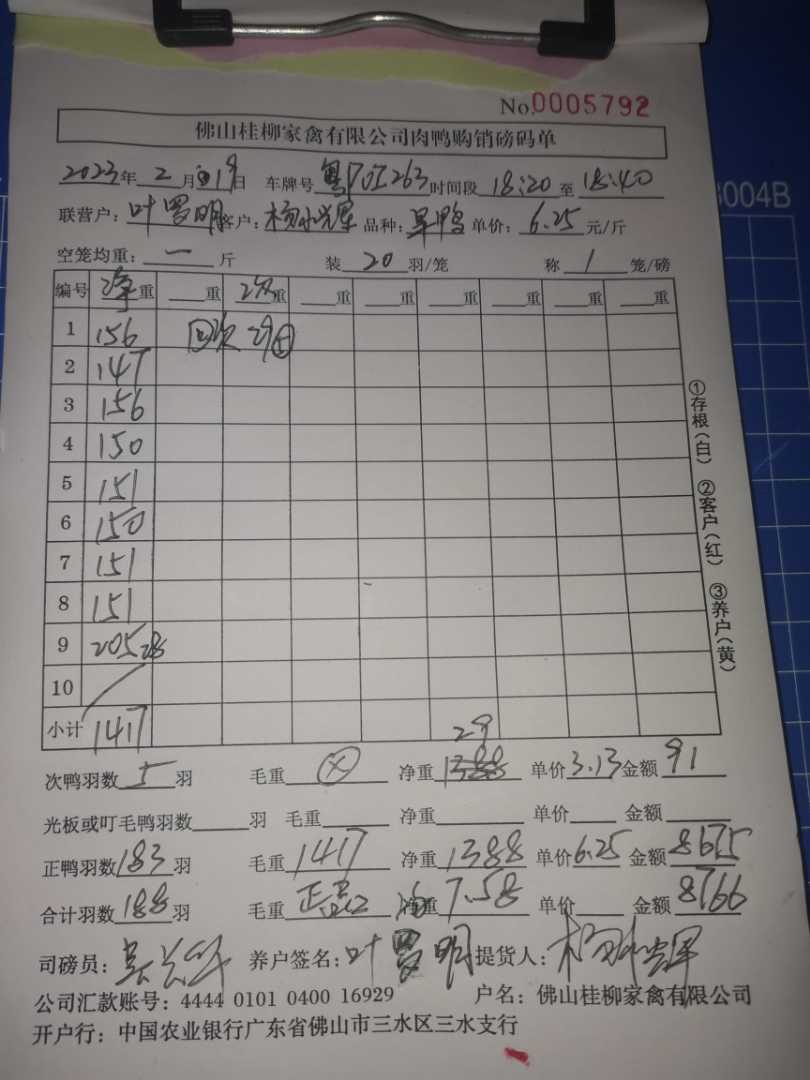 No.0005792
佛山桂柳家禽有限公司肉鸭购销磅码单
2023年 2 月 19日 车牌号: 263 时间段 18:20 至 18:40
联营户: 叶罗明 客户: 杨水辉 品种: 旱鸭 单价: 6.25 元/斤
空笼均重: 一 斤 装 20 羽/笼 称 1 笼/磅
编号 净重 重 次重 重 重 重 重 重 重
1 156 回次 29
2 147
3 156
4 150
5 151
6 150
7 151
8 151
9 205 28
10
小计 1417
①存根(白) ②客户(红) ③养户(黄)
29
次鸭羽数 5 羽 毛重 净重 1388 单价 3.13 金额 91
光板或叮毛鸭羽数 羽 毛重 净重 单价 金额
正鸭羽数 183 羽 毛重 1417 净重 1388 单价 6.25 金额 8675
合计羽数 188 羽 毛重 净重 7.58 单价 金额 8766
司磅员: 养户签名: 叶罗明 提货人: 杨水辉
公司汇款账号: 4444 0101 0400 16929 户名: 佛山桂柳家禽有限公司
开户行: 中国农业银行广东省佛山市三水区三水支行
3004B